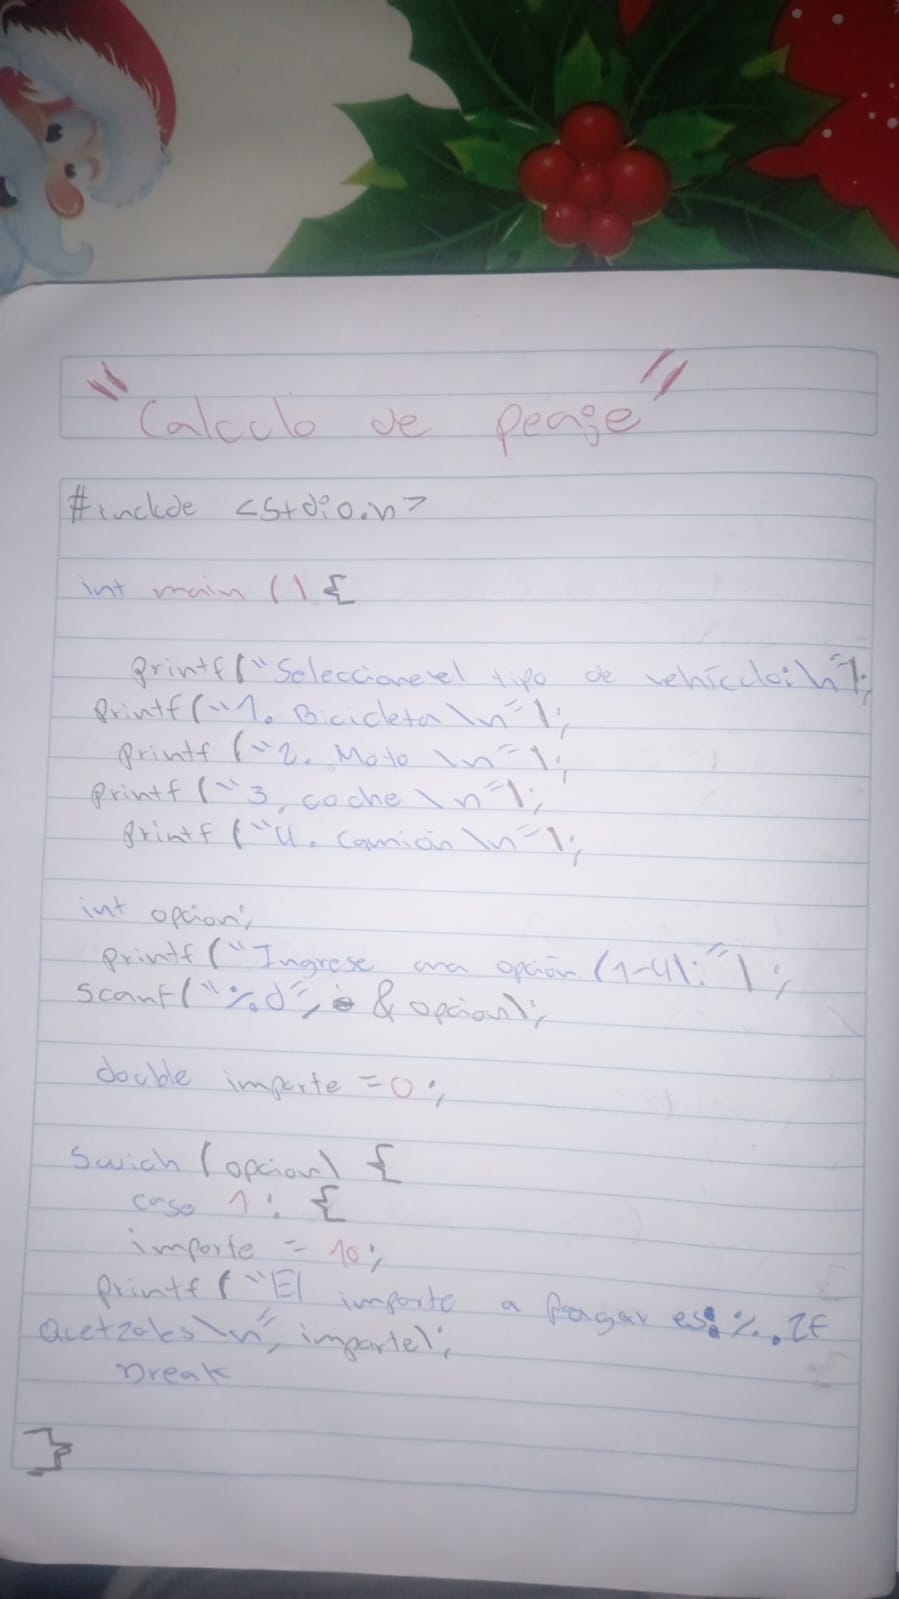 "Calculo de peaje"
#include <stdio.h>
int main () {
printf("Seleccione el tipo de vehículo:\n");
printf("1. Bicicleta \n");
printf ("2. Moto \n");
printf ("3. coche \n");
printf ("4. Camión \n");
int opcion;
printf("Ingrese una opción (1-4): ");
scanf("%d", & opcion);
double importe = 0;
swich (opcion) {
case 1: {
importe = 10;
printf ("El importe a pagar es: %.2f
Quetzales\n", importe);
break
}